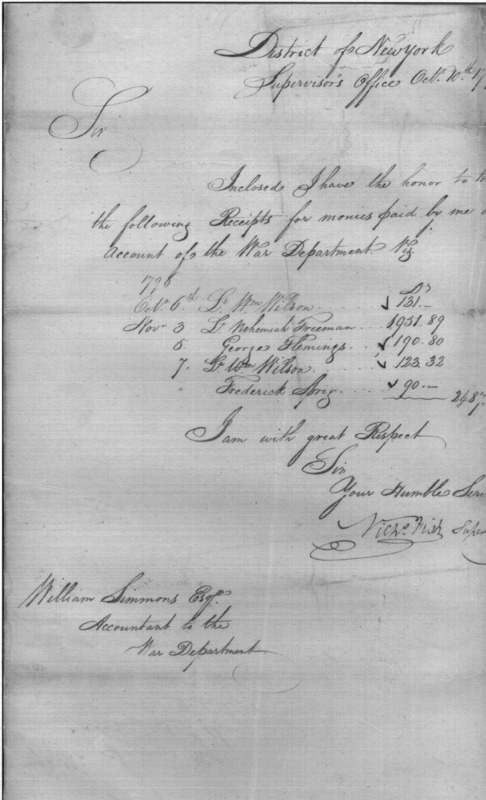 District of New York
Supervisor's Office Octr. 10th 17
Sir
Inclosed I have the honor to
the following Receipts for monies paid by me
Account of the War Department Viz
1796
Octr. 6th Lt. Wm Wilson 131.—
Novr 3 Lt Nehemiah Freeman 1951.89
5 George Flemings 190.80
7. Lt Wm Wilson 123.32
" Frederick Sprig 90.— 2487
I am with great Respect
Sir
Your Humble Ser
Nichs. Fish Super
William Simmons Esqr.
Accountant to the
War Department